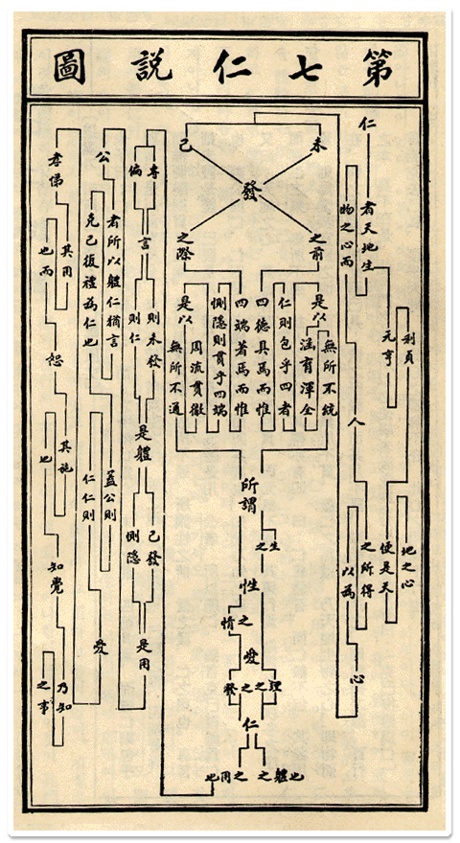 第七仁說圖
仁
者天地生
物之心而
人
之所得
以爲
心
元亨
利貞
便是天
地之心
未
發
已
之前
之際
是以
無所不統
涵育渾全
仁則包乎四者
四德具焉而惟
四端著焉而惟
惻隱則貫乎四端
周流貫徹
是以
無所不通
所謂
生之
性
愛
之理
仁
之體也
之情
之發
之用也
專
偏
言
則未發
則仁
是體
已發
惻隱
是用
公
者所以體仁猶言
克己復禮爲仁也
蓋公則
仁仁則
愛
孝悌
其用
也而
恕
其施
也
知覺
乃知
之事